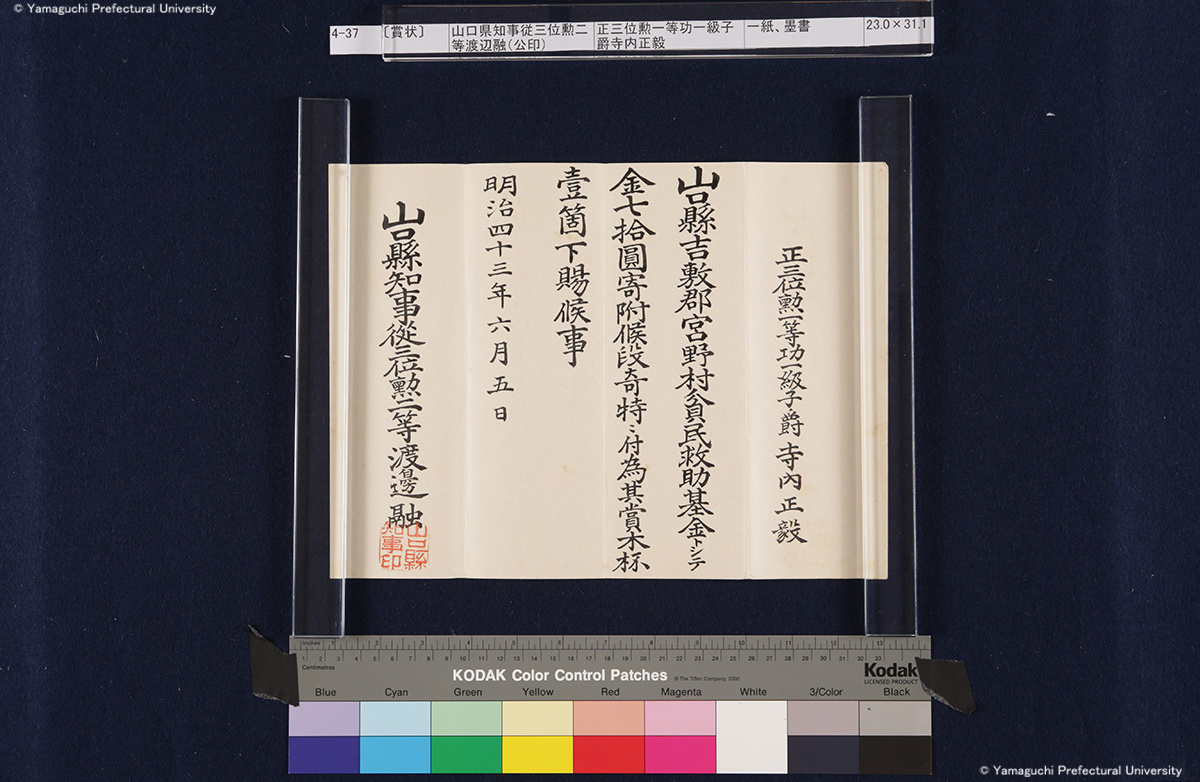 © Yamaguchi Prefectural University
4-37
〔賞状〕
山口県知事從三位勲二
等渡辺融(公印)
正三位勲一等功一級子
爵寺内正毅
一紙、墨書
23.0×31.1
正三位勲一等功一級子爵寺内正毅
山口縣吉敷郡宮野村貧民救助基金トシテ
金七拾圓寄附候段奇特ニ付為其賞木杯
壹箇下賜候事
明治四十三年六月五日
山口縣知事從三位勲二等渡邊融
山口縣
知事印
Inches 1 2 3 4 5 6 7 8 9 10 11 12 13
Centimetres
1 2 3 4 5 6 7 8 9 10 11 12 13 14 15 16 17 18 19 20 21 22 23 24 25 26 27 28 29 30 31 32 33
KODAK Color Control Patches
© The Tiffen Company, 2000
Kodak
LICENSED PRODUCT
Blue
Cyan
Green
Yellow
Red
Magenta
White
3/Color
Black
© Yamaguchi Prefectural University